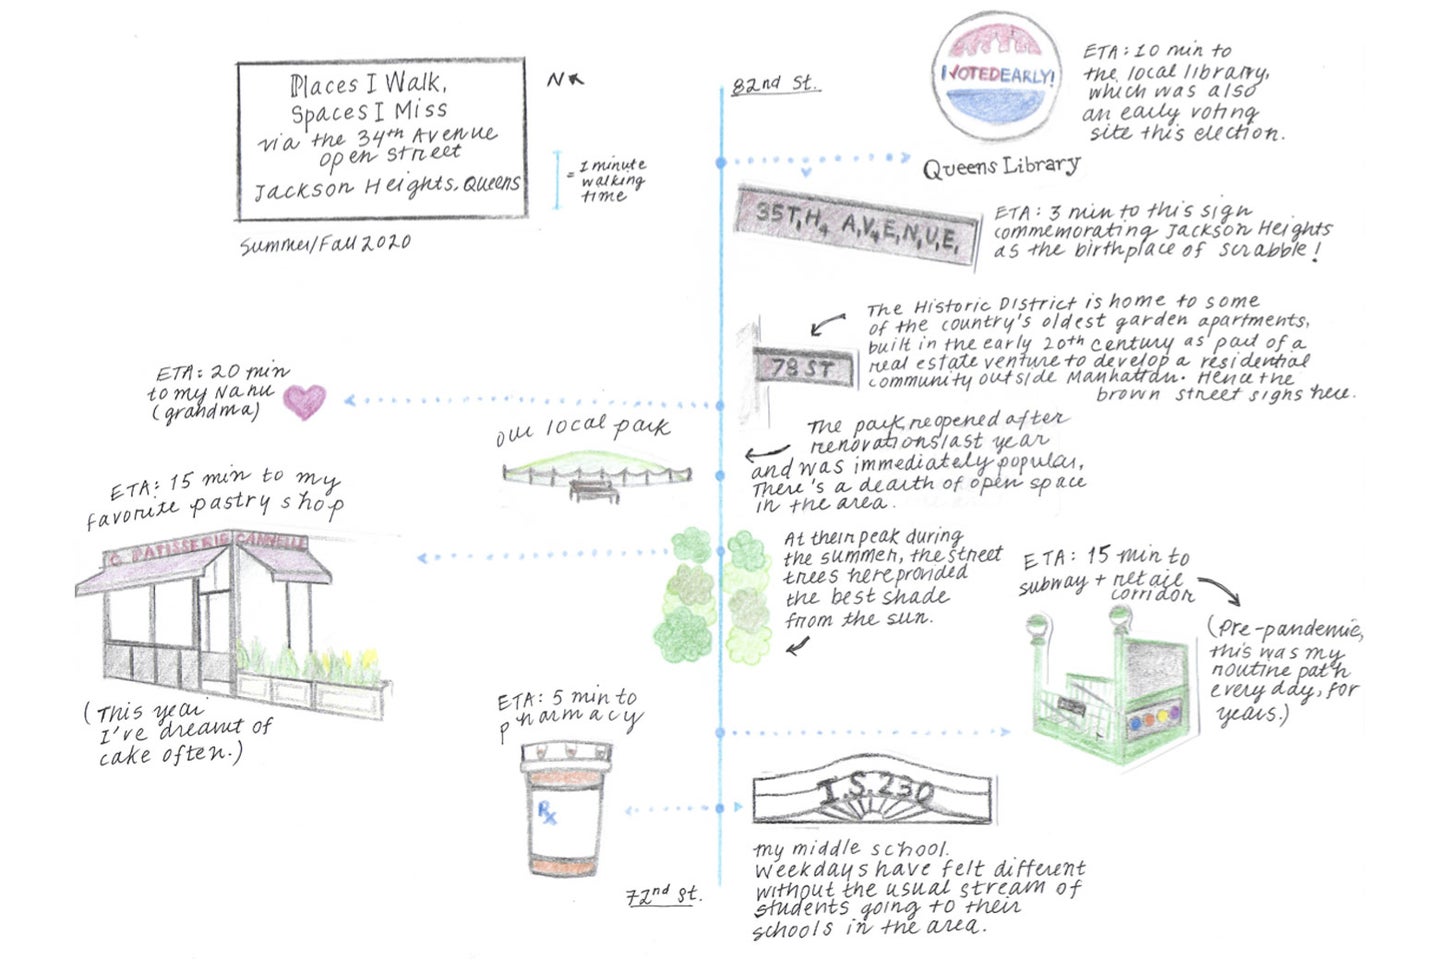 Places I Walk,
Spaces I Miss
via the 34th Avenue
open street
Jackson Heights, Queens
Summer/Fall 2020
N
= 1 minute
walking
time
82nd St.
I VOTED EARLY!
ETA: 10 min to
the local library,
which was also
an early voting
site this election.
Queens Library
35TH AVENUE
ETA: 3 min to this sign
commemorating Jackson Heights
as the birthplace of Scrabble!
The Historic District is home to some
of the country's oldest garden apartments,
built in the early 20th century as part of a
real estate venture to develop a residential
community outside Manhattan. Hence the
brown street signs here.
78 ST
ETA: 20 min
to my Nanu
(grandma)
our local park
The park reopened after
renovations last year
and was immediately popular,
There's a dearth of open space
in the area.
ETA: 15 min to my
favorite pastry shop
C. PATISSERIE CANNELLE
(This year
I've dreamt of
cake often.)
At their peak during
the summer, the street
trees here provided
the best shade
from the sun.
ETA: 15 min to
subway + retail
corridor
(Pre-pandemic,
this was my
routine path
every day, for
years.)
ETA: 5 min to
pharmacy
Rx
I.S. 230
my middle school.
Weekdays have felt different
without the usual stream of
students going to their
schools in the area.
72nd St.